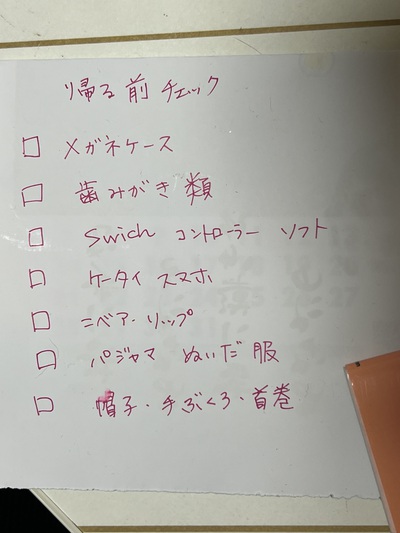 帰る前チェック
□ メガネケース
□ 歯みがき類
□ Swich コントローラー ソフト
□ ケータイ スマホ
□ ニベア・リップ
□ パジャマ ぬいだ服
□ 帽子・手ぶくろ・首巻